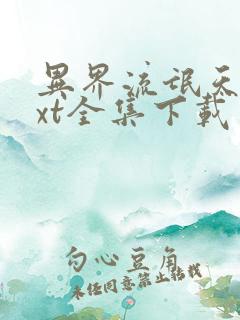 異界流氓天
xt全集下載
勾心豆角
未经同意禁止转载